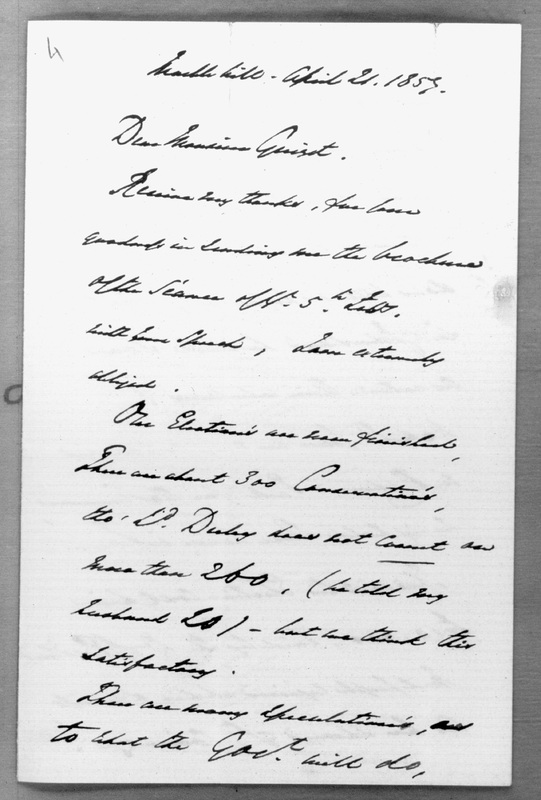 Marble hill - April 21. 1857.
Dear Monsieur Guizot.
Receive my thanks, for your
goodness in sending me the brochure
of the Séance of the 5th Febr.
with your Speech, I am extremely
obliged.
Our Elections are now finished,
There are about 300 Conservatives,
tho' Ld. Derby does not count on
more than 260, (he told my
husband 20) - but we think this
satisfactory.
There are many speculations, as
to what the Govt. will do,